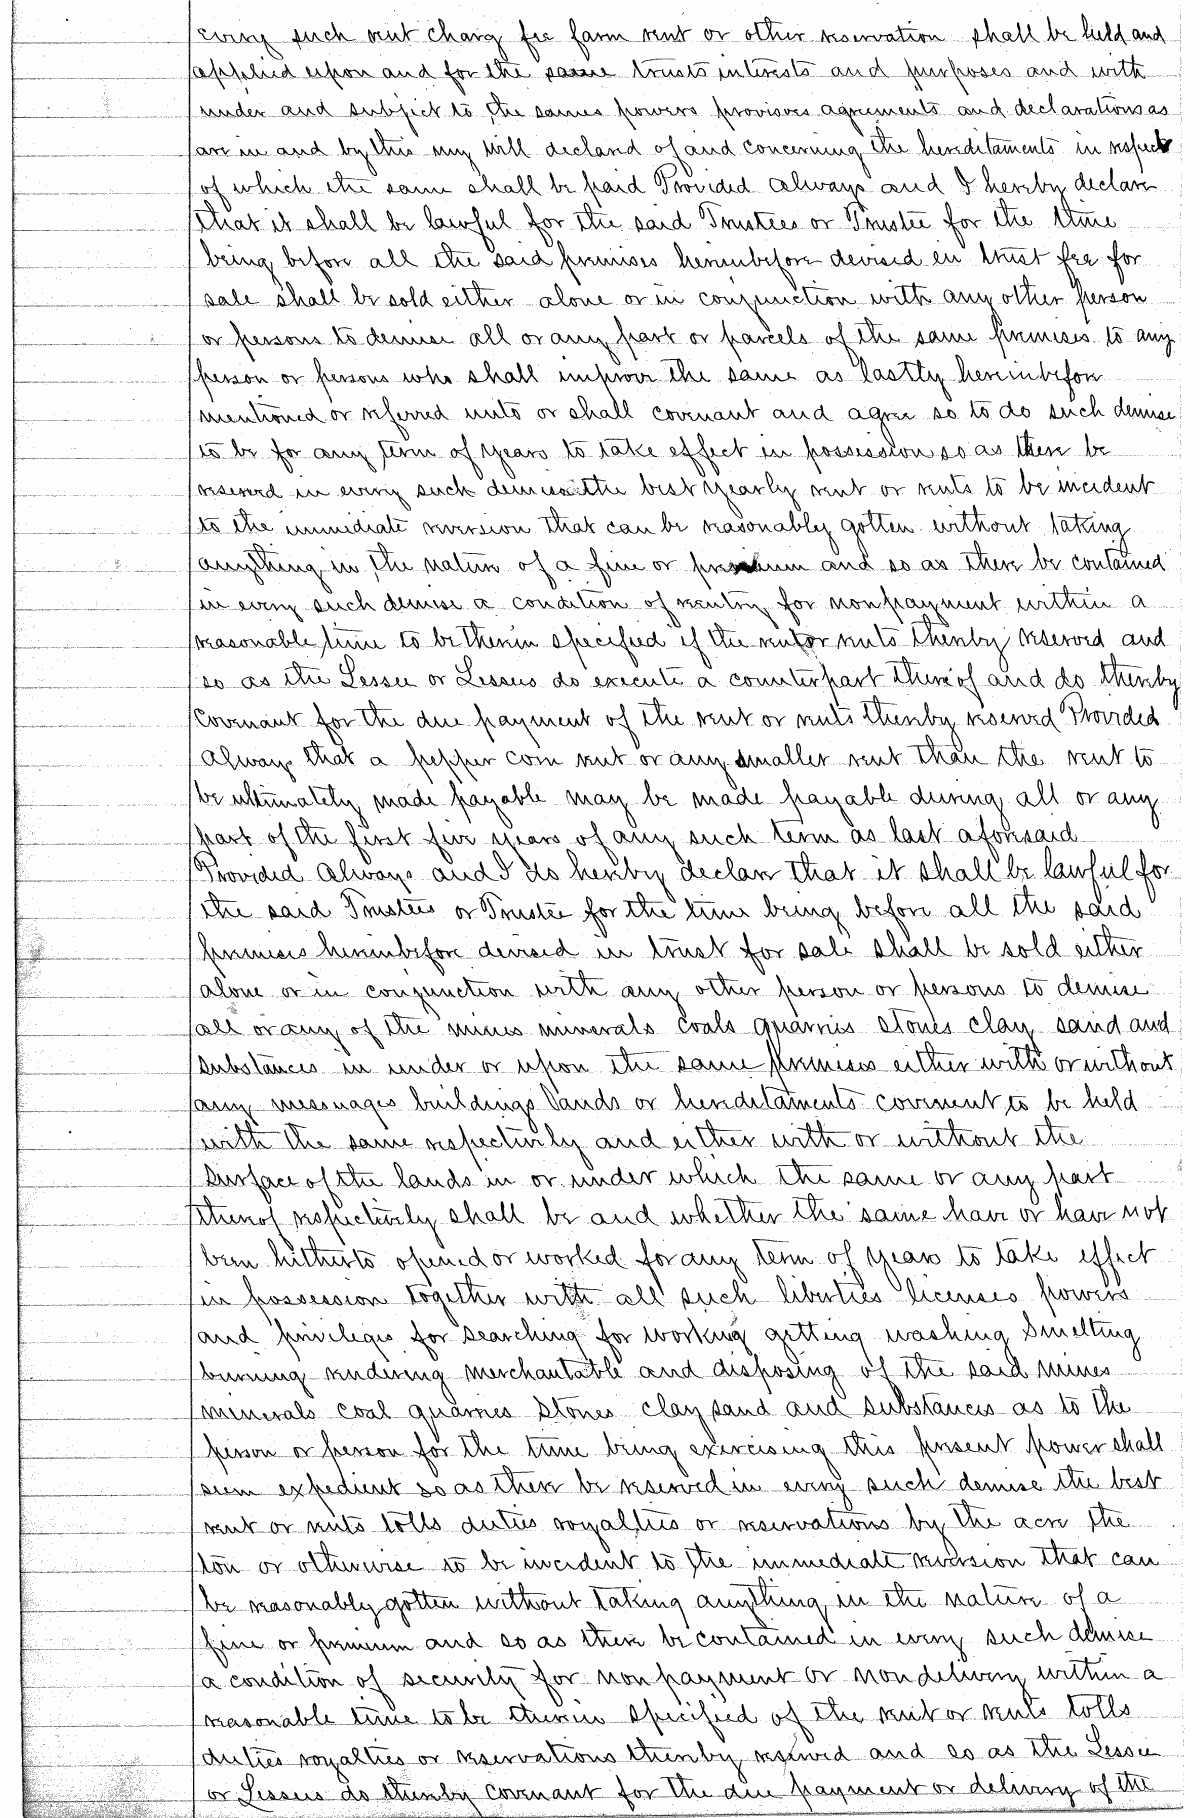 every such rent charg fee farm rent or other reservation shall be held and
applied upon and for the same trusts interests and purposes and with
under and subject to the sames powers provisoes agreements and declarations as
are in and by this my Will declared of and concerning the hereditaments in respect
of which the same shall be paid Provided always and I hereby declare
that it shall be lawful for the said Trustees or Trustee for the time
being before all the said premises hereinbefore devised in trust fee for
sale shall be sold either alone or in conjunction with any other person
or persons to demise all or any part or parcels of the same premises to any
person or persons who shall improve the same as lastly hereinbefore
mentioned or referred unto or shall covenant and agree so to do such demise
to be for any term of years to take effect in possession so as there be
reserved in every such demise the best yearly rent or rents to be incident
to the immediate reversion that can be reasonably gotten without taking
anything in the nature of a fine or premium and so as there be contained
in every such demise a condition of reentry for nonpayment within a
reasonable time to be therein specified if the rent or rents thereby reserved and
so as the Lessee or Lessees do execute a counterpart thereof and do thereby
Covenant for the due payment of the rent or rents thereby reserved Provided
Always that a pepper corn rent or any smaller rent than the rent to
be ultimately made payable may be made payable during all or any
part of the first five years of any such term as last aforesaid
Provided Always and I do hereby declare that it shall be lawful for
the said Trustees or Trustee for the time being before all the said
premises hereinbefore devised in trust for sale shall be sold either
alone or in conjunction with any other person or persons to demise
all or any of the mines minerals coals quarries stones clay sand and
substances in under or upon the same premises either with or without
any messuages buildings lands or hereditaments convenient to be held
with the same respectively and either with or without the
surface of the lands in or under which the same or any part
thereof respectively shall be and whether the same have or have not
been hitherto opened or worked for any term of years to take effect
in possession together with all such liberties licenses powers
and privileges for searching for working getting washing smelting
burning rendering merchantable and disposing of the said mines
minerals coal quarries stones clay sand and substances as to the
person or person for the time being exercising this present power shall
seem expedient so as there be reserved in every such demise the best
rent or rents tolls duties royalties or reservations by the acre the
ton or otherwise to be incident to the immediate reversion that can
be reasonably gotten without taking anything in the nature of a
fine or premium and so as there be contained in every such demise
a condition of security for non payment or non delivery within a
reasonable time to be therein specified of the rent or rents tolls
duties royalties or reservations thereby reserved and so as the Lessee
or Lessees do thereby covenant for the due payment or delivery of the